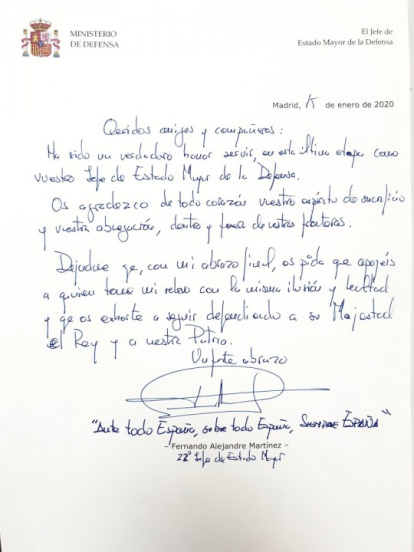 MINISTERIO
DE DEFENSA
El Jefe de
Estado Mayor de la Defensa
Madrid, 15 de enero de 2020
Queridos amigos y compañeros:
Ha sido un verdadero honor servir, en esta última etapa como
vuestro Jefe de Estado Mayor de la Defensa.
Os agradezco de todo corazón vuestro espíritu de sacrificio
y vuestra abnegación, dentro y fuera de nuestras fronteras.
Dejadme que, con mi abrazo final, os pida que apoyéis
a quien tome mi relevo con la misma ilusión y lealtad
y que os exhorte a seguir defendiendo a su Majestad
el Rey y a nuestra Patria.
Un fuerte abrazo
"Ante todo España, sobre todo España, SIEMPRE ESPAÑA"
– Fernando Alejandre Martínez –
22º Jefe de Estado Mayor